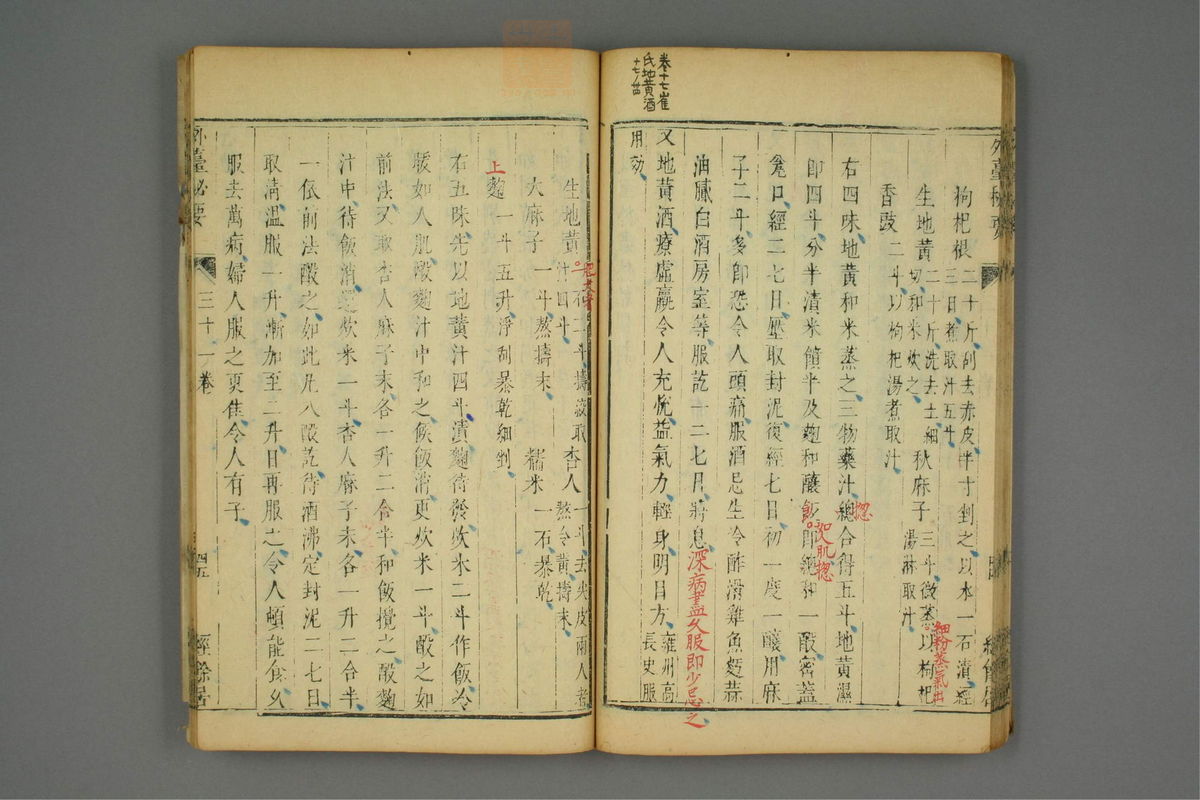 卷十七崔
氏地黄酒
十七ノ廿四
枸杞根二十斤刮去赤皮半寸剉之以水一石漬經
三日煮取汁五斗
生地黄二十斤洗去土細
切和米炊之
秋麻子三斗微蒸以枸杞
湯淋取汁
細粉蒸氣出
香豉二斗以枸杞湯煮取汁
右四味地黄和米蒸之三物藥汁總合得五斗地黄濕
惣
即四斗分半漬米饙半及麴和釀飯即總和一酘密蓋
如人肌惣
瓮口經二七日壓取封泥復經七日初一度一釀用麻
子二斗多即恐令人頭痛服酒忌生冷酢滑雞魚麪蒜
油膩白酒房室等服訖一二七日將息
深病盡久服即少忌之
又地黄酒療虛羸令人充悅益氣力輕身明目方雍州高
長史服
用効
生地黄
汁四斗
杏人一斗去尖皮兩人者
熬令黄擣末
大麻子一斗熬擣末
糯米一石暴乾
上麴一斗五升淨刮暴乾細剉
右五味先以地黄汁四斗漬麴待發炊米二斗作飯冷
暖如人肌酘麴汁中和之候飯消更炊米一斗酘之如
前法又取杏人麻子末各一升二合半和飯攪之酘麴
汁中待飯消還炊米一斗杏人麻子末各一升二合半
一依前法酘之如此凡八酘訖待酒沸定封泥二七日
取清溫服一升漸加至二升日再服之令人頓能食久
服去萬病婦人服之更佳令人有子
外臺秘要
三十一卷
四五
經餘居